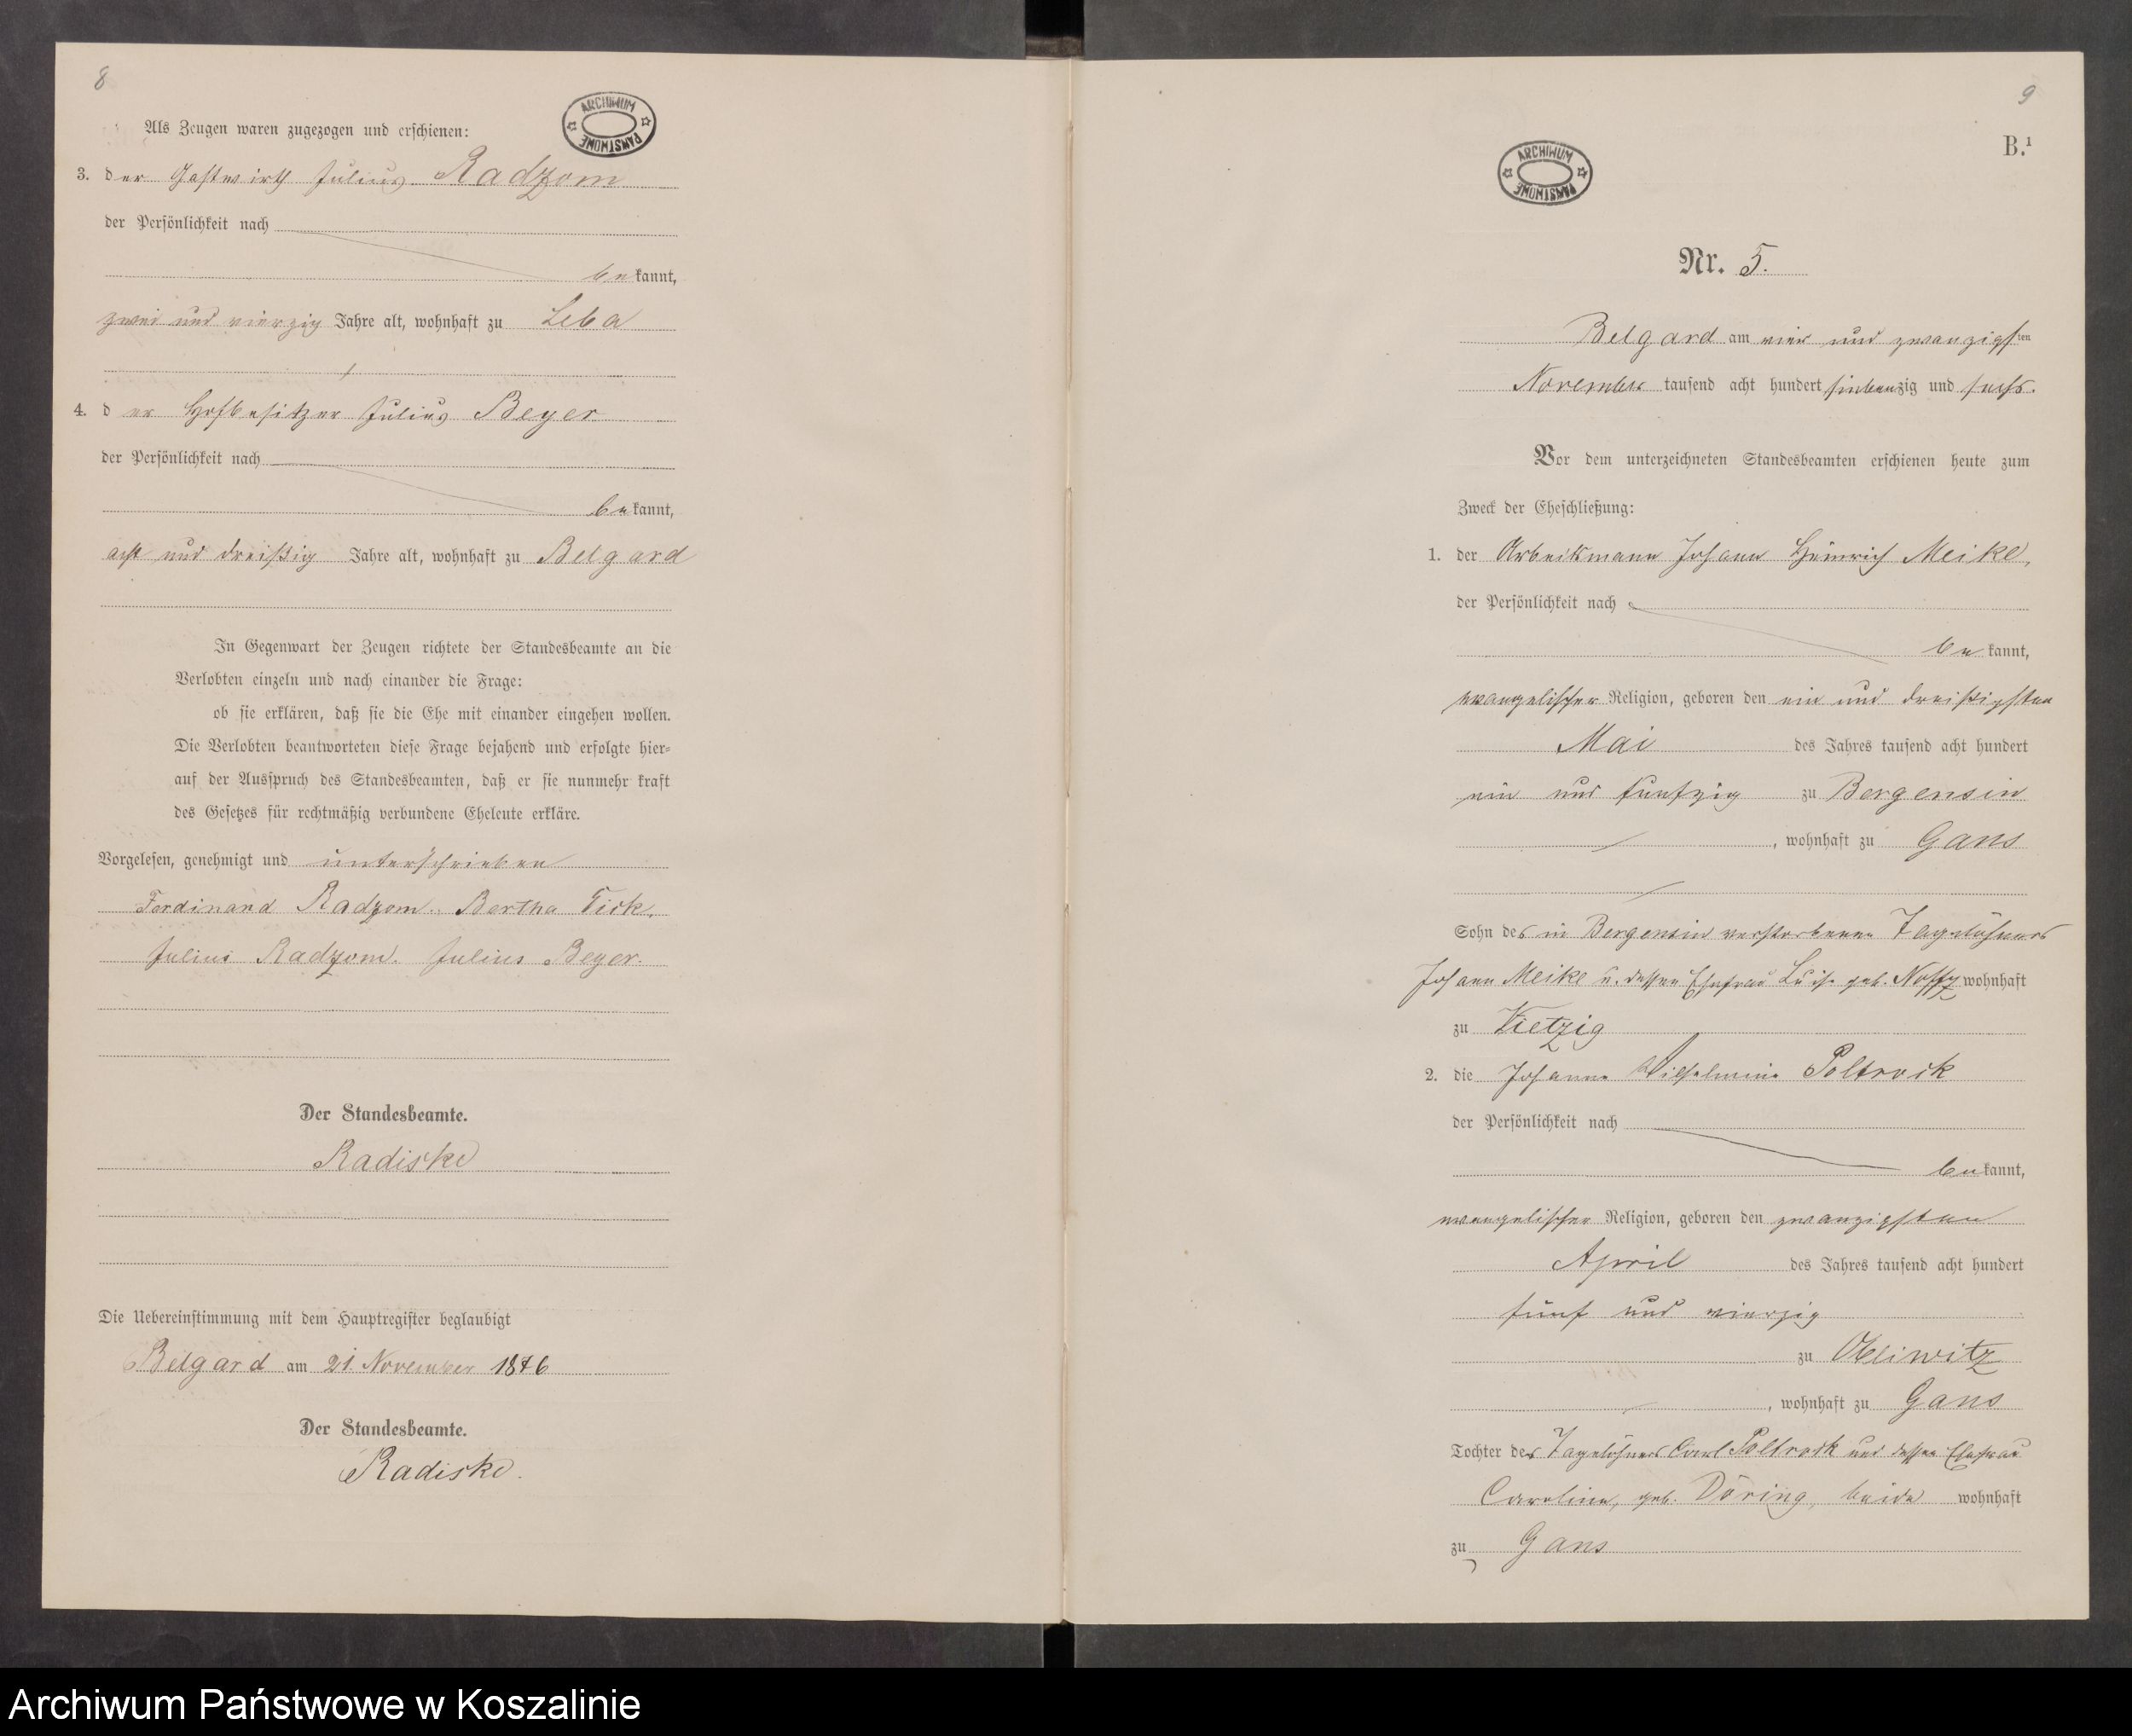 8
Als Zeugen waren zugezogen und erschienen:
ARCHIWUM PAŃSTWOWE
3. der Gastwirth Julius Radzom
der Persönlichkeit nach
bekannt,
zwei und vierzig Jahre alt, wohnhaft zu Leba
4. der Hofbesitzer Julius Beyer
der Persönlichkeit nach
bekannt,
acht und dreißig Jahre alt, wohnhaft zu Belgard
In Gegenwart der Zeugen richtete der Standesbeamte an die
Verlobten einzeln und nach einander die Frage:
ob sie erklären, daß sie die Ehe mit einander eingehen wollen.
Die Verlobten beantworteten diese Frage bejahend und erfolgte hier-
auf der Ausspruch des Standesbeamten, daß er sie nunmehr kraft
des Gesetzes für rechtmäßig verbundene Eheleute erkläre.
Vorgelesen, genehmigt und unterschrieben
Ferdinand Radzom. Bertha Tick.
Julius Radzom. Julius Beyer.
Der Standesbeamte.
Radiske
Die Uebereinstimmung mit dem Hauptregister beglaubigt
Belgard am 21. November 1876
Der Standesbeamte.
Radiske.
9
B.¹
ARCHIWUM PAŃSTWOWE
Nr. 5.
Belgard am vier und zwanzigsten
November tausend acht hundert siebenzig und sechs.
Vor dem unterzeichneten Standesbeamten erschienen heute zum
Zweck der Eheschließung:
1. der Arbeitsmann Johann Heinrich Meike,
der Persönlichkeit nach
bekannt,
evangelischer Religion, geboren den ein und dreißigsten
Mai des Jahres tausend acht hundert
ein und funfzig zu Bergensin
, wohnhaft zu Gans
Sohn des in Bergensin verstorbenen Tagelöhners
Johann Meike u. dessen Ehefrau Luise geb. Noffz wohnhaft
zu Vietzig
2. die Johanne Wilhelmine Poltrock
der Persönlichkeit nach
bekannt,
evangelischer Religion, geboren den zwanzigsten
April des Jahres tausend acht hundert
fünf und vierzig
zu Obliwitz
, wohnhaft zu Gans
Tochter des Tagelöhners Carl Poltrock und dessen Ehefrau
Caroline, geb. Döring, beide wohnhaft
zu Gans
Archiwum Państwowe w Koszalinie